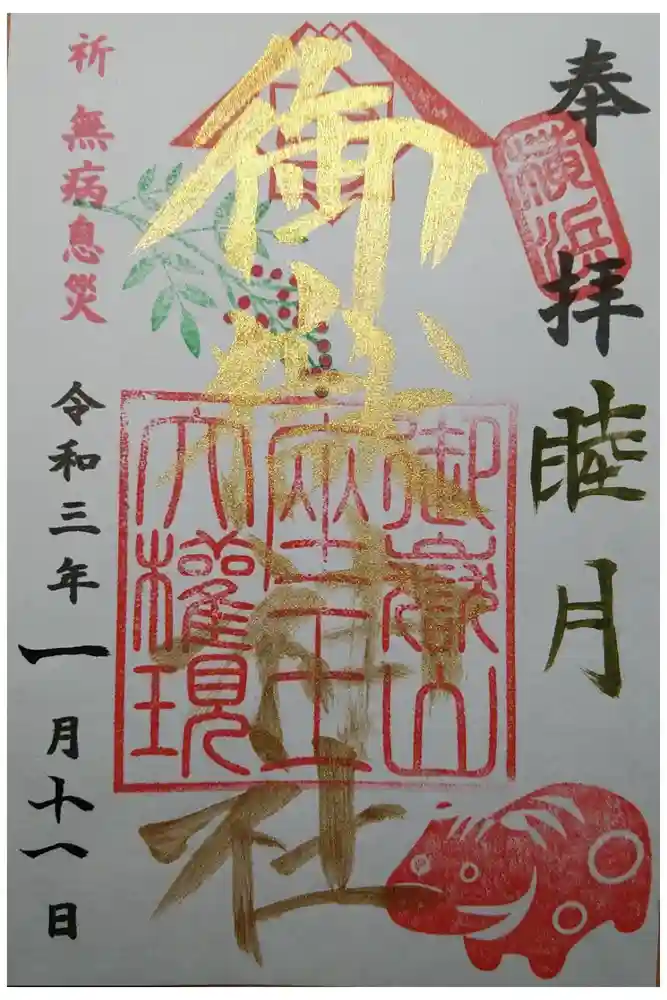 奉拝
横浜
睦月
御嶽神社
御嶽山
座王
大権現
祈 無病息災
令和三年一月十八日